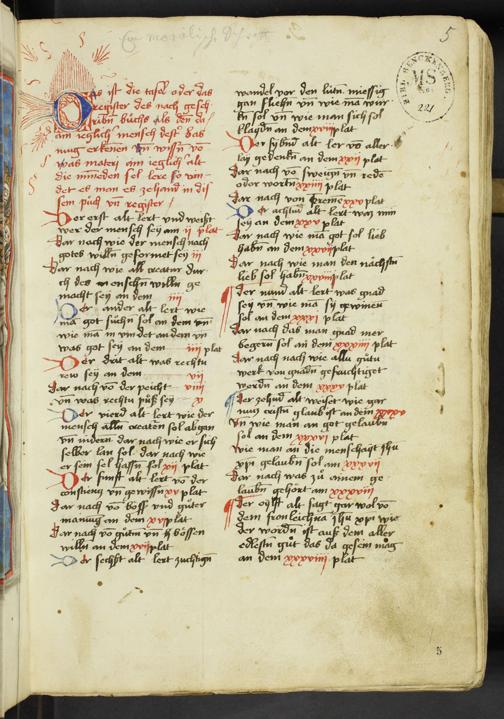 5
BIBL. MENCKEBERG
MS
221
Das ist die tafel oder das
register des nach gesch
ribn büchs als den di
am ieglich mensch dest bas
mug erkenen vn wissn vo
was matery am ieglich alt
die minēden sel lere so vin
det es man es zehand in dis
sem püch vn register
Der erst alt lert vnd weist
wer der mensch sey am ii plat
dar nach wie der mensch nach
gotes willn geformet sey iii
dar nach wie all creatur dur
ch des menschn willn ge
machet sey an dem iiii
Der ander alt lert wie
mā got süchn sol an dem
wie mā in vindet an dem vn
was got sey an dem iiii plat
Der drit alt was rechtu
rew sey an dem vii
dar nach vō der peicht viii
vn was rechtu püß sey x
Der vierd alt lert wie der
mensch alln creatēn sol absgan
vn indern dar nach wie er sich
selber lan sol dar nach wie
er sein sol hassn sol xii plat
Der fünft alt lert vō der
conscieng vn gewissn xv plat
dar nach vō böss vnd güter
manung an dem xvi plat
dar nach vō gūtm vn bössen
willn an dem xvii plat
Der sechst alt lert züchtign
wandel vor den lütn miessig
gan fliehn vn wie mā wür
kn sol vn wie man sich sol
klaydn an dem xviii plat
Der sybnd alt ler vō aller
lay gedenkn an dem xxii plat
dar nach vō sweign vn rede
oder wortn xxiiii plat
dar nach von xxv plat
Der achtnd alt lert was min
sey an dem xxv plat
dar nach wie mā got sol lieb
habn an dem xxvii plat
dar nach wie man den nächstn
lieb sol habn xxviii plat
Der nünd alt lert was gnad
sey vn wie mā sy gewinen
sol an dem xxxi plat
dar nach das man gnad mer
begern sol an dem xxxiii plat
dar nach nach wie allu gūtu
werk von gnadn gefruchtiget
werdn an dem xxxv plat
Der zehnd alt weiset wie gar
nucz cristn glaub ist an dem xxxv
vn wie man an got gelaubn
sol an dem xxxvi plat
wie man an die menschayt ihu
xpi gelaubn sol am xxxvii
dar nach was zū ainem ge
laubn gehört am xxxviii
Der eylft alt sagt gar wol vō
dem fronleichnā ihu xpi wie
der wordn ist auß dem aller
edlestn gūt das da gesein mag
an dem xxxviiii plat
5